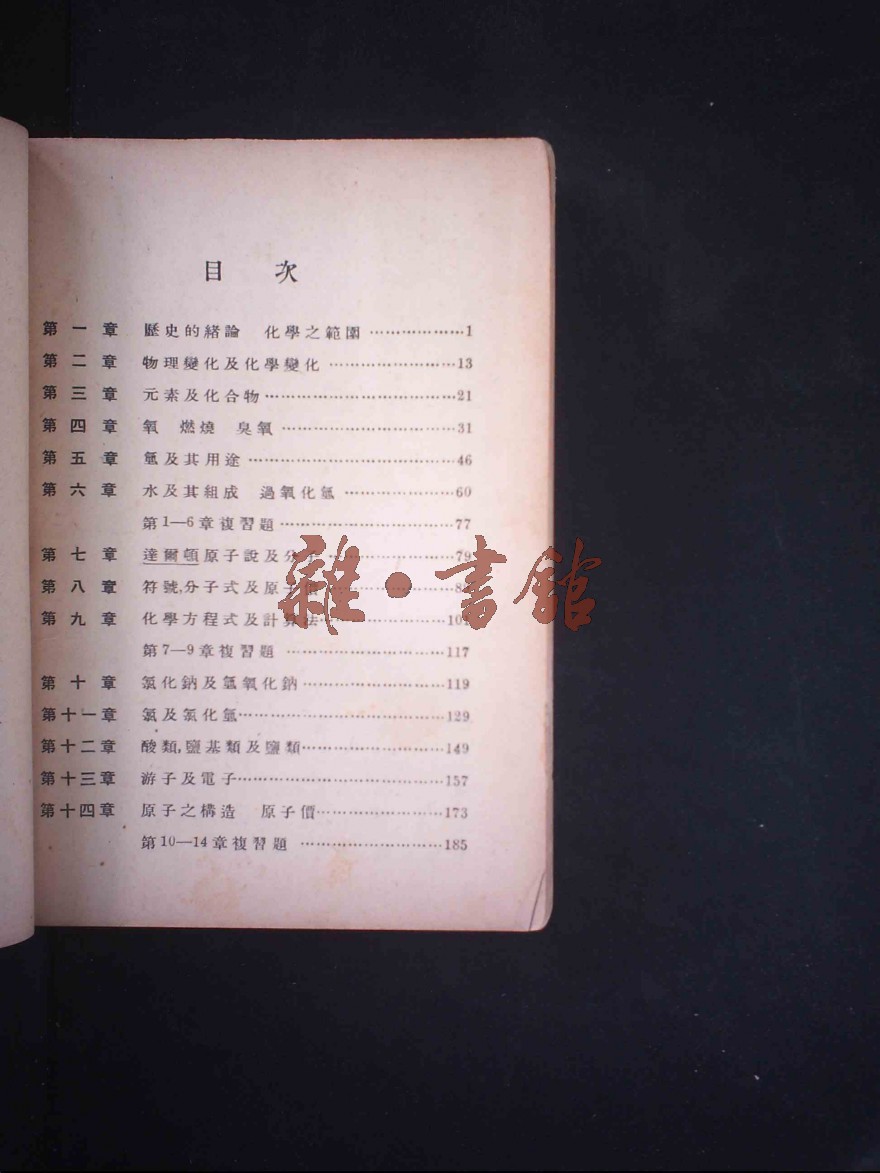 目 次
第一章 歷史的緒論 化學之範圍 ……………… 1
第二章 物理變化及化學變化 ……………… 13
第三章 元素及化合物 ……………… 21
第四章 氧 燃燒 臭氧 ……………… 31
第五章 氫及其用途 ……………… 46
第六章 水及其組成 過氧化氫 ……………… 60
第1—6章複習題 ……………… 77
第七章 達爾頓原子說及分子 ……………… 79
第八章 符號,分子式及原子價 ………………
第九章 化學方程式及計算法 ………………
第7—9章複習題 ……………… 117
第十章 氯化鈉及氫氧化鈉 ……………… 119
第十一章 氯及氯化氫 ……………… 129
第十二章 酸類,鹽基類及鹽類 ……………… 149
第十三章 游子及電子 ……………… 157
第十四章 原子之構造 原子價 ……………… 173
第10—14章複習題 ……………… 185
雜·書館